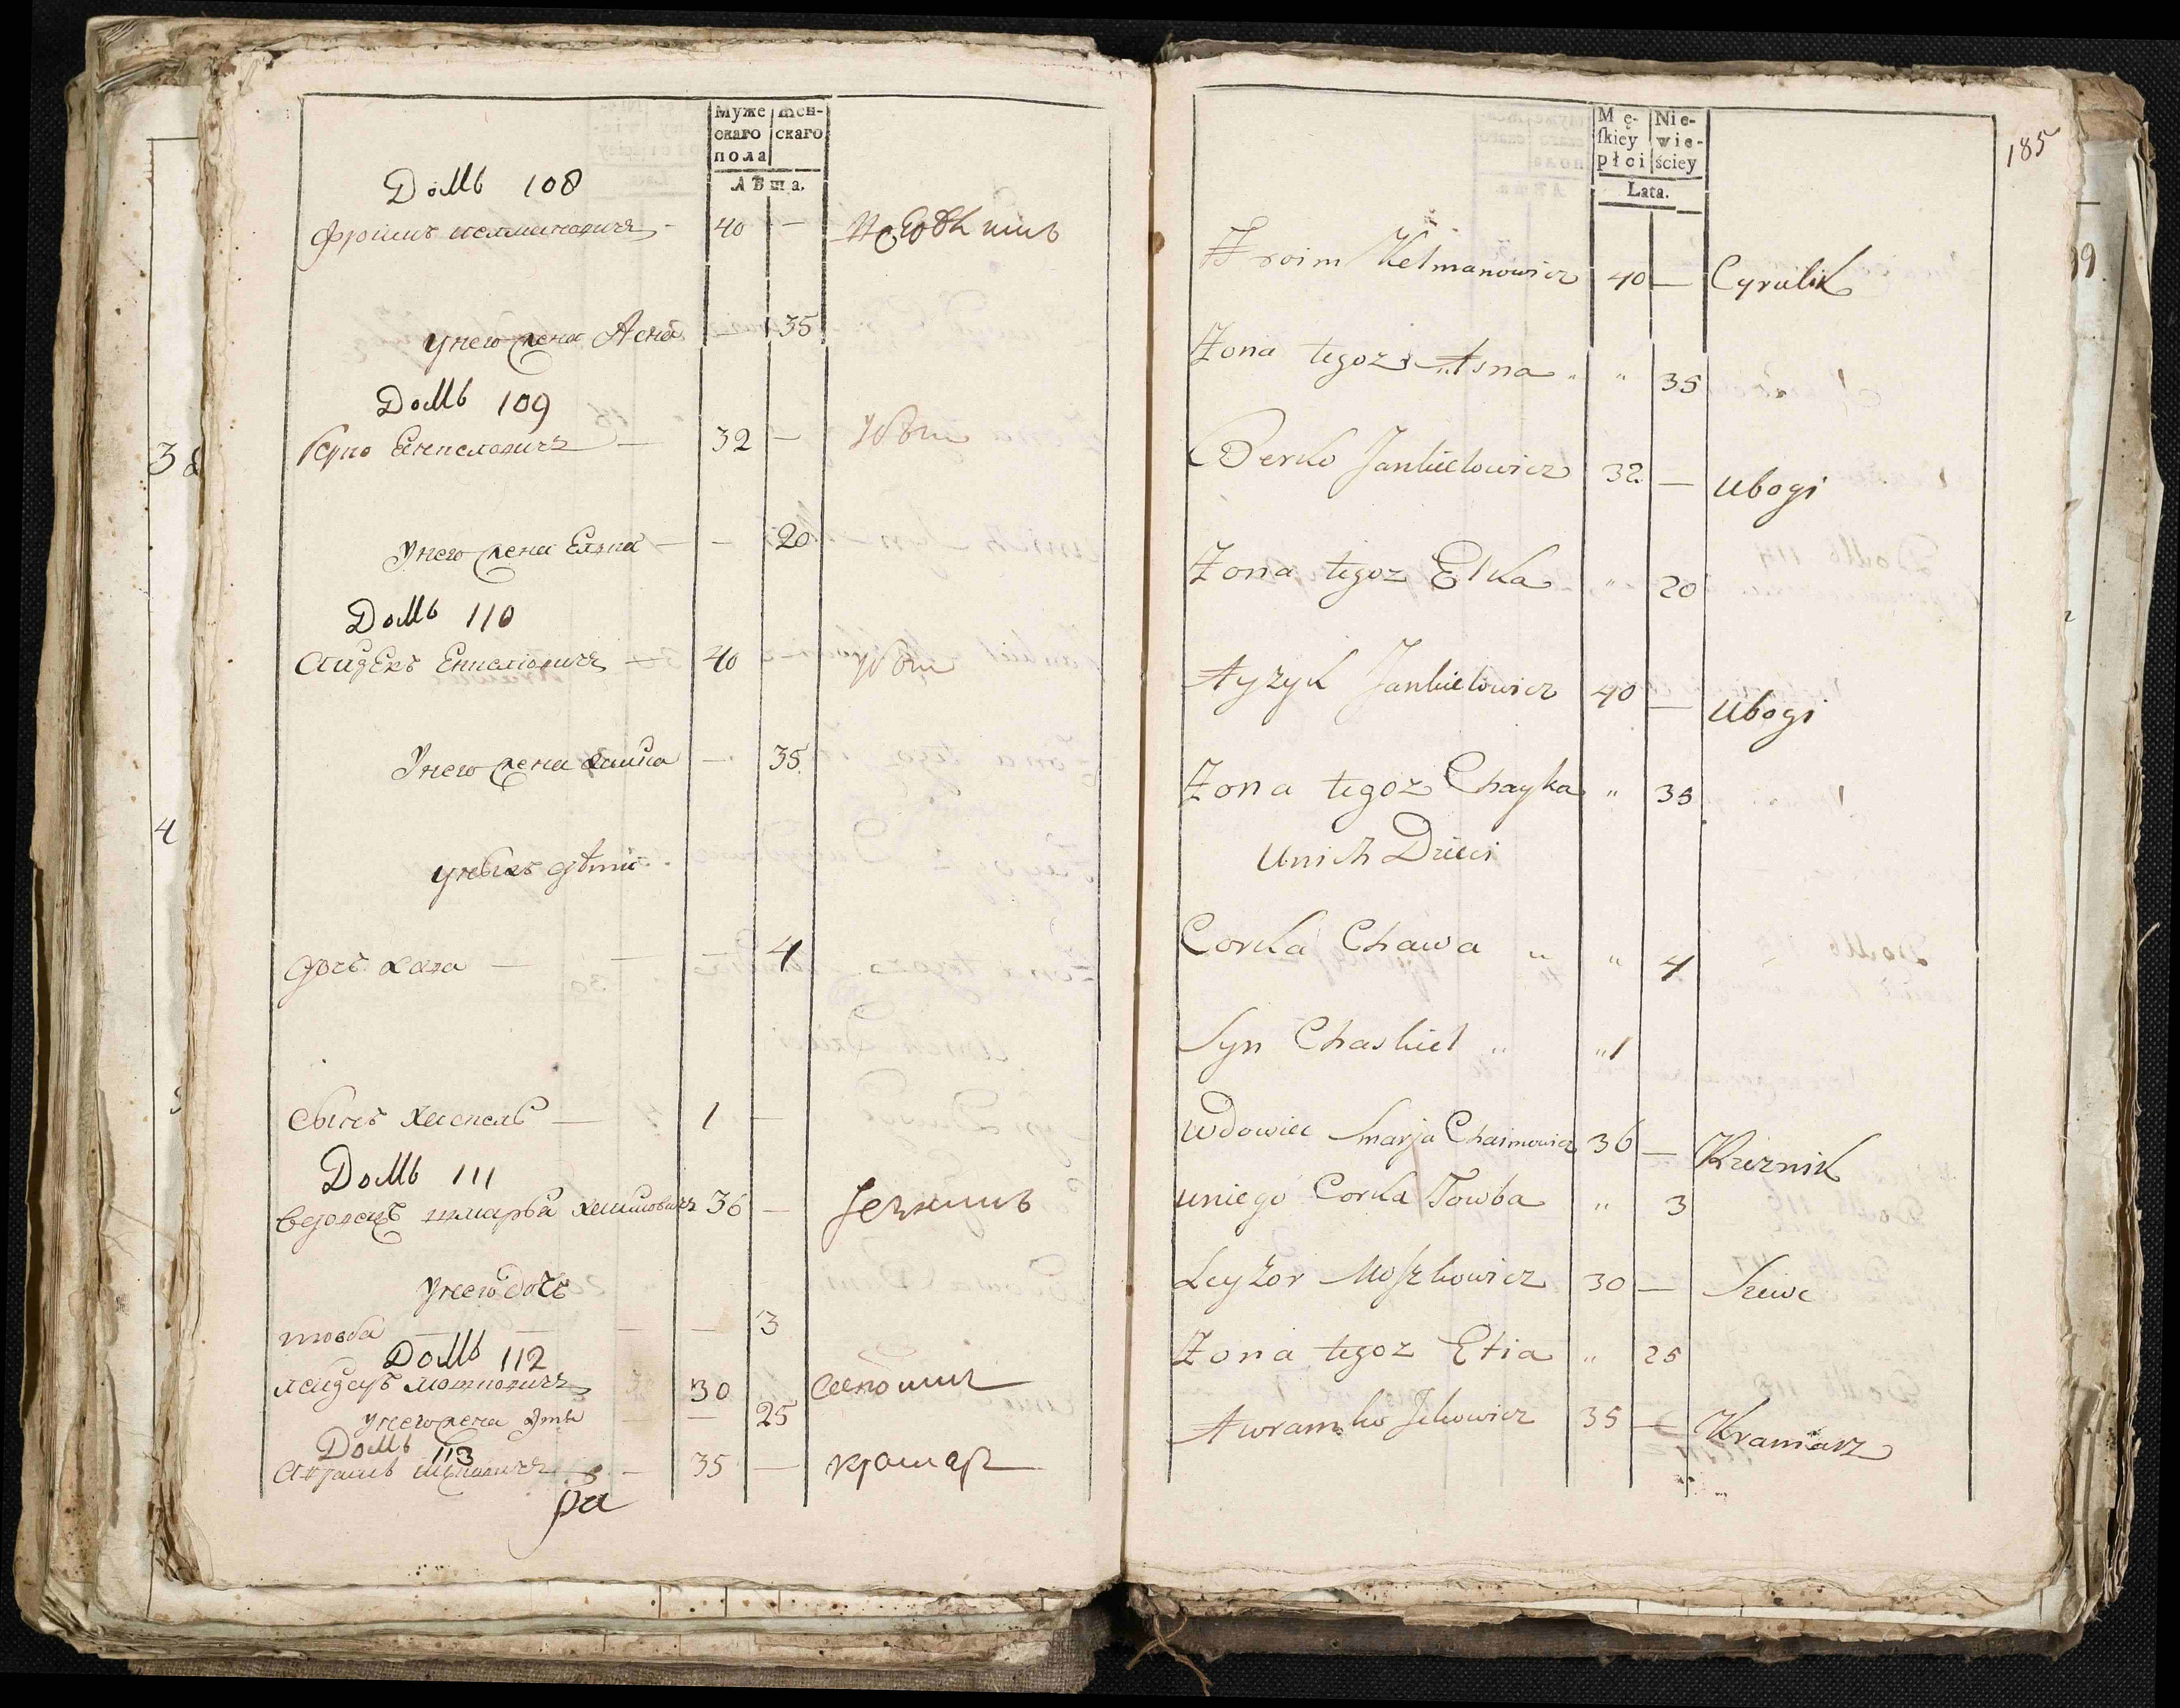 Муже
скаго
пола
жен-
скаго
Лѣта.
Домъ 108
Фроимъ Келмановичъ - 40 —
у него жена Асна — 35
Домъ 109
Берко Енкеловичъ — 32 — убог
У него жена Елка — - 20
Домъ 110
Айзекъ Енкелiовичъ — 40 убог
У него жена Хайка — 35
у них дѣти
дочь Хава — — — 4
Сынъ Хаскель — 1 —
Домъ 111
Вдовецъ Шмаръя Хаимовичъ 36 —
У него дочь
товба — — — — 3
Домъ 112
Лейзеръ Мошковичъ 30
у него жена Этя — 25
Домъ 113
Аврамъ Ицковичъ — 35 — крамар
ра
185
Mę-
skiey
płci
Nie-
wie-
ściey
Lata.
Froim Kelmanowicz 40 — Cyrulik
Zona tegoz Asna " " 35
Berko Jankielowicz 32 — Ubogi
Zona tegoz Elka " 20
Ayzyk Jankielowicz 40 — Ubogi
Zona tegoz Chayka " 35
Unich Dzieci
Corka Chawa " " 4
Syn Chaskiel " " 1
Wdowiec Smarja Chaimowicz 36 — Rzeznik
uniego Corka Towba " 3
Leyzor Moszkowicz 30 — Szewc
Zona tegoz Etia " 25
Awramko Ickowicz 35 — Kramarz
38
4
99